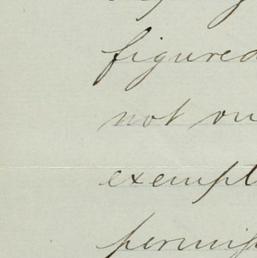 figured
not ou
exempt
permis